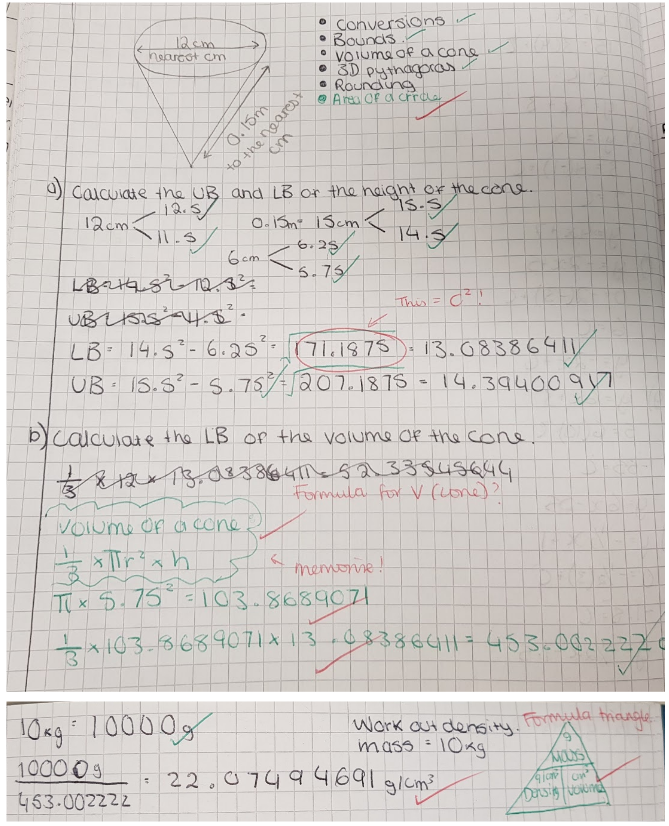 12cm
nearest cm
0.15m
to the nearest
cm
• Conversions
• Bounds
• Volume of a cone
• 3D pythagoras
• Rounding
• Area of a circle
a) Calculate the UB and LB of the height of the cone.
12cm < 12.5 11.5 0.15m = 15cm < 15.5 14.5
6cm < 6.25 5.75
This = C²!
LB = 14.5² - 6.25² = √171.1875 = 13.08386411
UB = 15.5² - 5.75² = √207.1875 = 14.39400917
b) Calculate the LB of the volume of the cone.
1/3 × 12 × 13.08386411 = 52.33545644
Formula for V (cone)?
Volume of a cone
1/3 × πr² × h
memorise!
π × 5.75² = 103.8689071
1/3 × 103.8689071 × 13.08386411 = 453.002222
10kg = 10000g
10000g / 453.002222 = 22.07494691 g/cm³
Work out density.
mass = 10kg
Formula triangle
g
Mass
g/cm³ cm³
Density Volume